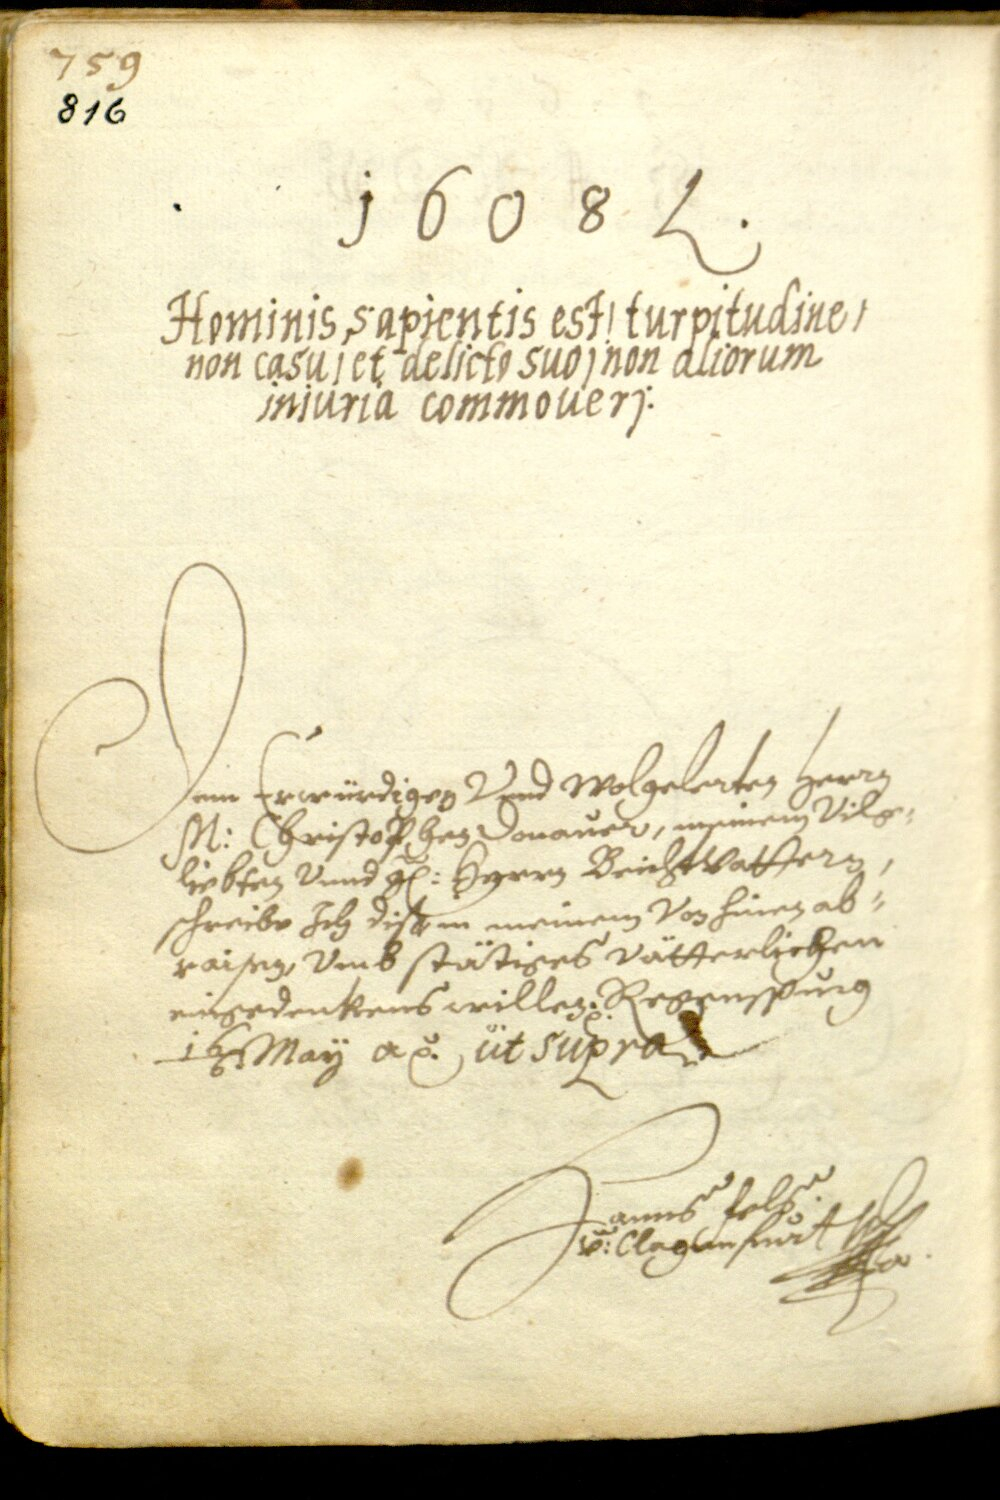 759
816
1608
Hominis sapientis est / turpitudine /
non casu / et delicto suo / non aliorum
iniuria commouerj.
Dem Erwürdigen Vnd Wolgelerten Herrn
M: Christophen Donauer, meinem Vilge=
liebten Vnnd Herrn Beichtvattern,
schreibe Ich diß in meinem Von hinen ab=
raisen, Vmb stätiges vätterlichen
eingedenkens willen. Regenspurg
16. May ao. ut supra
Hanns
v: Clagenfurt